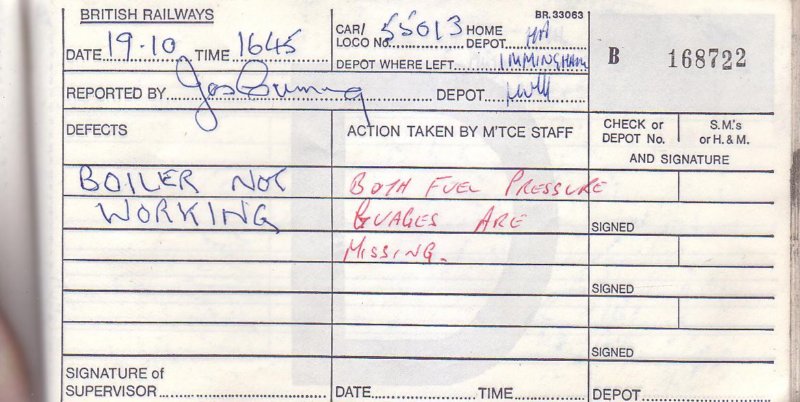 BRITISH RAILWAYS
BR. 33063
DATE 19·10 TIME 1645
CAR/ LOCO No. 55013 HOME DEPOT
B 168722
DEPOT WHERE LEFT IMMINGHAM
REPORTED BY DEPOT
DEFECTS
ACTION TAKEN BY M'TCE STAFF
CHECK or DEPOT No.
S.M's or H. & M.
AND SIGNATURE
BOILER NOT
WORKING
BOTH FUEL PRESSURE
GUAGES ARE
MISSING.
SIGNED
SIGNED
SIGNED
SIGNATURE of
SUPERVISOR
DATE TIME
DEPOT